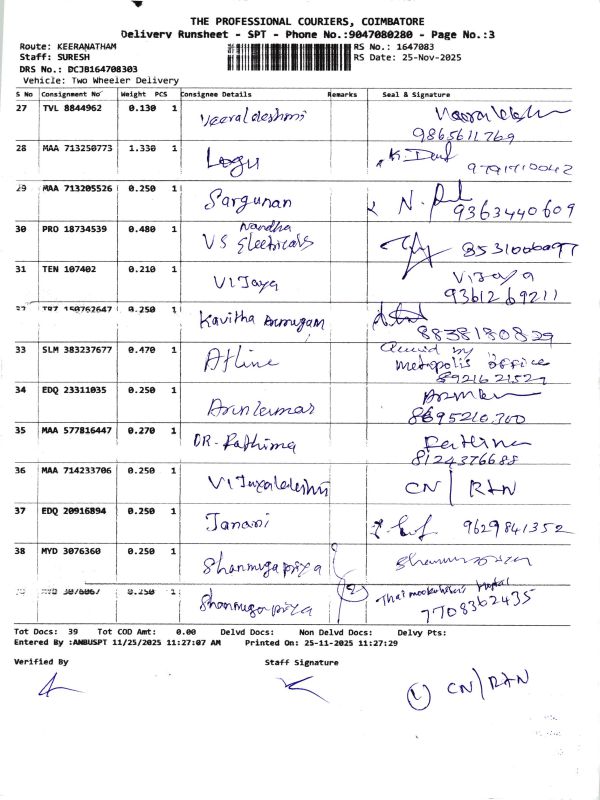 THE PROFESSIONAL COURIERS, COIMBATORE
Delivery Runsheet - SPT - Phone No.:9047080280 - Page No.:3
Route: KEERANATHAM RS No.: 1647083
Staff: SURESH RS Date: 25-Nov-2025
DRS No.: DCJB164708303
Vehicle: Two Wheeler Delivery
S No Consignment No Weight PCS Consignee Details Remarks Seal & Signature
27 TVL 8844962 0.130 1 Veeralakshmi
9865611769
28 MAA 713250773 1.330 1 Logu
9791710042
29 MAA 713205526 0.250 1 Sargunan
9363440609
30 PRO 18734539 0.480 1 Nandha
VS Electricals 8531006097
31 TEN 107402 0.210 1 Vijaya Vijaya
9361269211
32 TRZ 150762647 0.250 1 Kavitha Arumugam
8838180829
33 SLM 383237677 0.470 1 metropolis office
8921621527
34 EDQ 23311035 0.250 1
8695210300
35 MAA 577816447 0.270 1 DR. Fathima Fathima
8124376688
36 MAA 714233706 0.250 1 Vijayalakshmi CN/RTN
37 EDQ 20916894 0.250 1 Janani 9629841352
38 MYD 3076360 0.250 1 Shanmugapriya
39 MYD 3076067 0.250 1 Shanmugapriya
7708362435
Tot Docs: 39 Tot COD Amt: 0.00 Delvd Docs: Non Delvd Docs: Delvy Pts:
Entered By :ANBUSPT 11/25/2025 11:27:07 AM Printed On: 25-11-2025 11:27:29
Verified By Staff Signature
1 CN/RTN